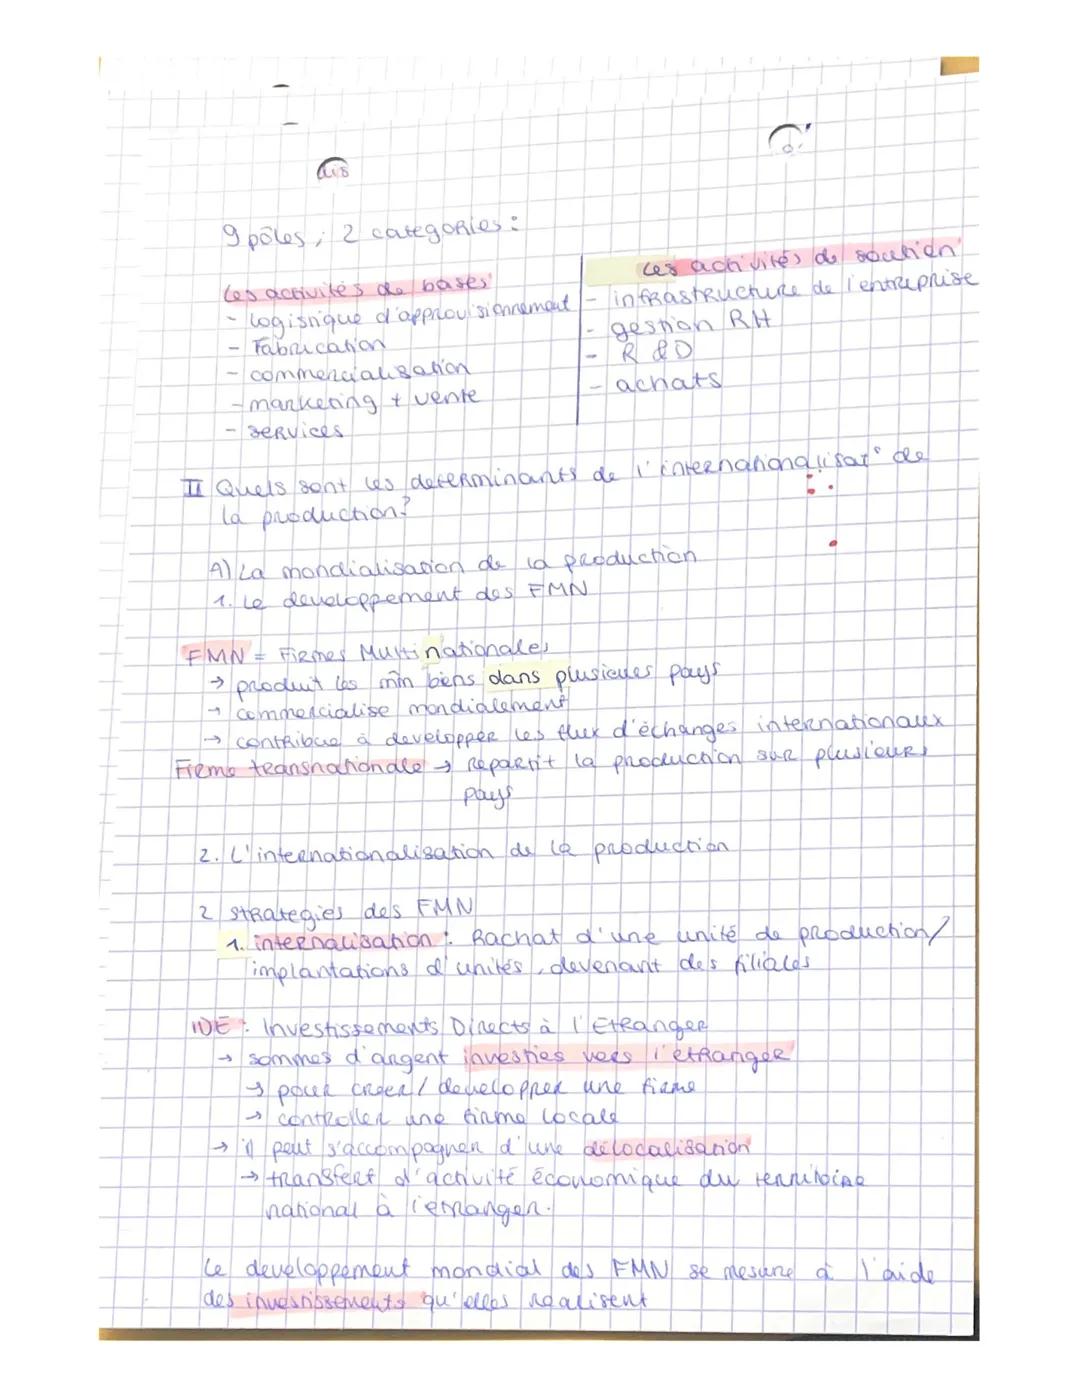 9 pôles, 2 categories :
les activités de bases
- logistique d'approvisionnement
- Fabrication
- commercialisation
- marketing + vente
- services
les activités de soutien
- infrastructure de l'entreprise
- gestion RH
- R &D
- achats
II Quels sont les determinants de l'internationalisat° de
la production?
A) La mondialisation de la production
1. Le developpement des FMN
FMN = Firmes Multinationales
→ produit les mm biens dans plusieurs pays
→ commercialise mondialement
→ contribue à developper les flux d'échanges internationaux
Firme transnationale → repartit la production sur plusieurs
pays
2. L'internationalisation de la production
2 strategies des FMN
1. internalisation : Rachat d'une unité de production/
implantations d'unités, devenant des filiales
IDE : Investissements Directs à l'Etranger
→ sommes d'argent investies vers l'etranger
→ pour creer / developper une firme
→ controller une firme locale
→ il peut s'accompagner d'une délocalisation
→ transfert d'activité économique du territoire
national à l'etranger.
Le developpement mondial des FMN se mesure à l'aide
des investissements qu'elles realisent